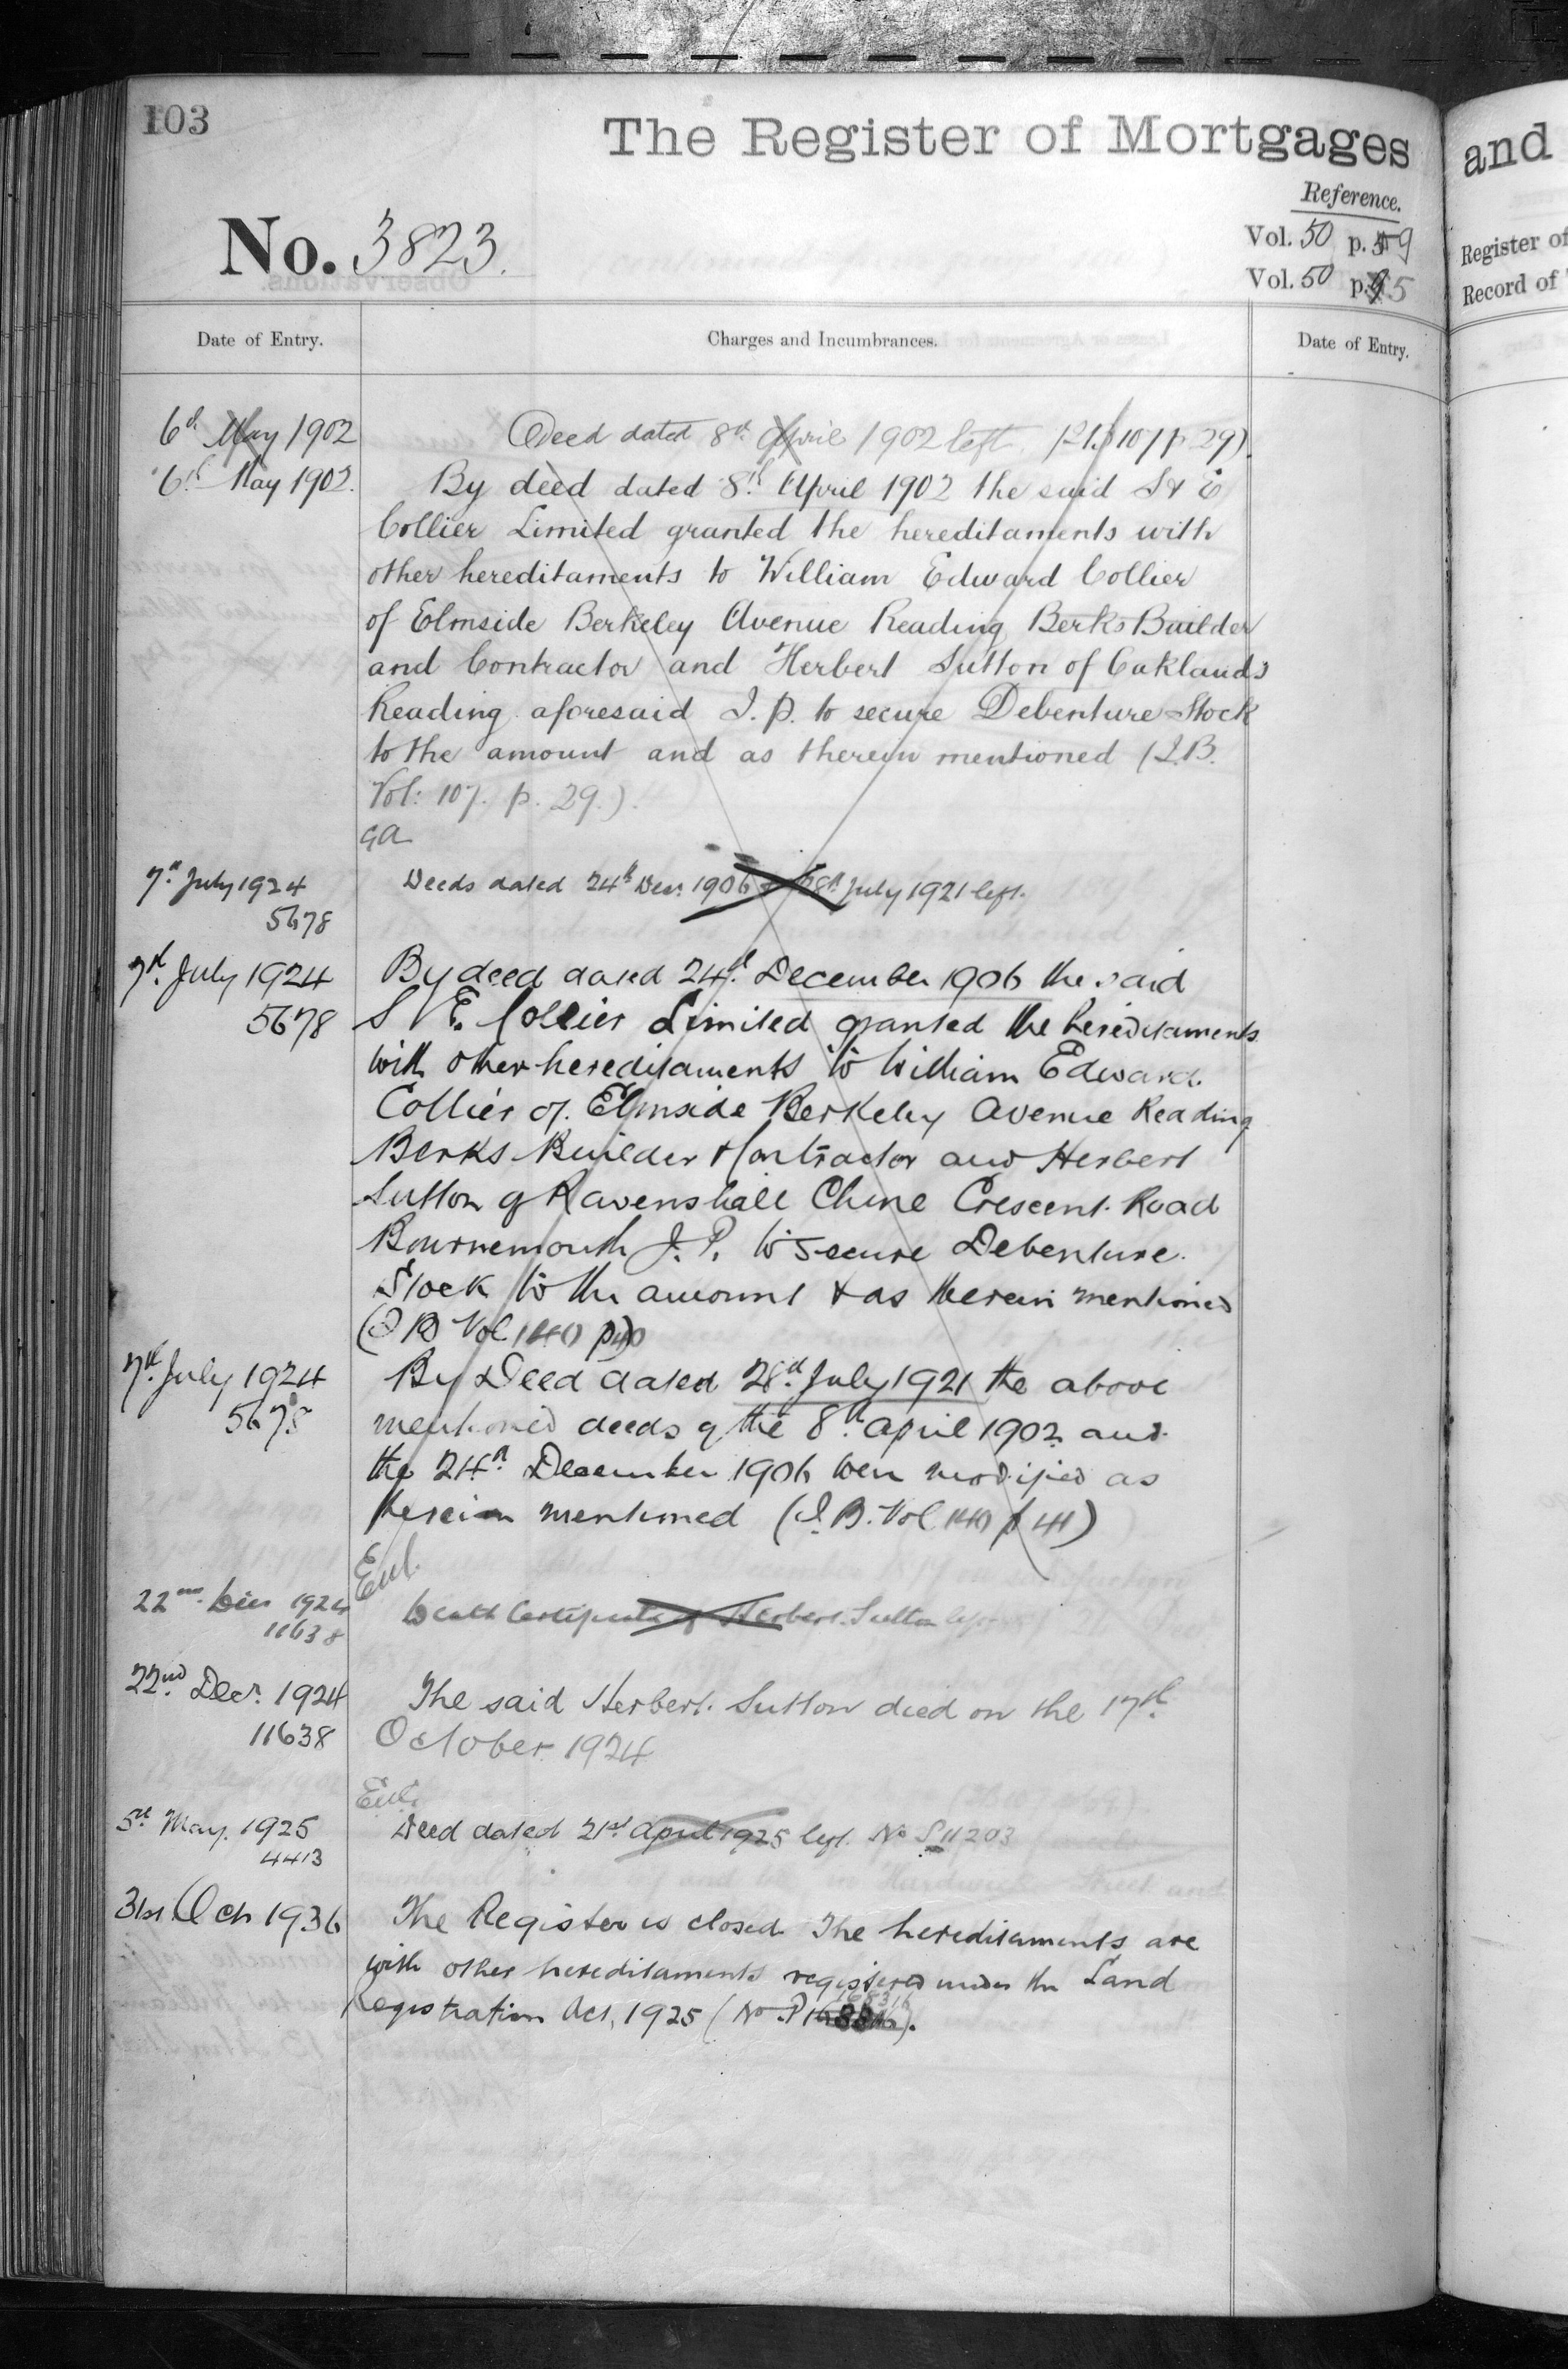 103
The Register of Mortgages
and
Reference.
No. 3823.
Vol. 50 p. 9
Register of
Vol. 50 p. 5
Record of
Date of Entry.
Charges and Incumbrances.
Date of Entry.
6th May 1902
Deed dated 8th April 1902 left 107 p 29)
6th May 1902.
By deed dated 8th April 1902 the said S & E
Collier Limited granted the hereditaments with
other hereditaments to William Edward Collier
of Elmside Berkeley Avenue Reading Berks Builder
and Contractor and Herbert Sutton of Oaklands
Reading aforesaid J.P. to secure Debenture Stock
to the amount and as therein mentioned (I.B.
Vol: 107. p. 29.).
7th July 1924
Deeds dated 24th Decr. 1906 & 28th July 1921 left.
5678
7th July 1924
By deed dated 24th December 1906 the said
5678
S & E. Collier Limited granted the hereditaments
with other hereditaments to William Edward
Collier of Elmside Berkeley Avenue Reading
Berks Builder & Contractor and Herbert
Sutton of Ravenshall Chine Crescent Road
Bournemouth J.P. to secure Debenture
Stock to the amount & as therein mentioned
(I B Vol 140 p 40)
7th July 1924
By Deed dated 28th July 1921 the above
5678
mentioned deeds of the 8th April 1902 and
the 24th December 1906 were modified as
therein mentioned (I.B. Vol 140 p 41)
22nd Decr 1924
Death Certificate of Herbert Sutton left
11638
22nd Decr. 1924
The said Herbert Sutton died on the 17th
11638
October 1924
5th May. 1925
Deed dated 21st April 1925 left. No S 11203
4413
31st Oct 1936
The Register is closed The hereditaments are
with other hereditaments registered under the Land
Registration Act, 1925 (No P 168316).